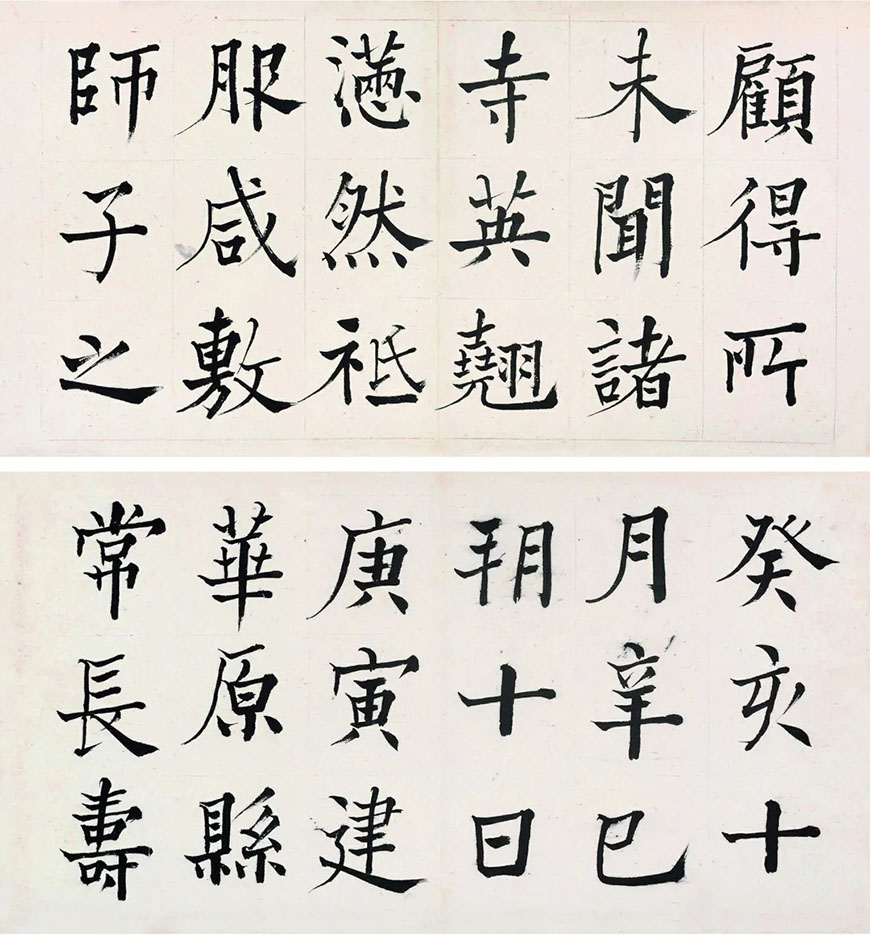 顧得所
未聞諸
寺英翹
懣然祗
服咸敷
師子之
癸亥十
月辛巳
朔十日
庚寅建
華原縣
常長壽